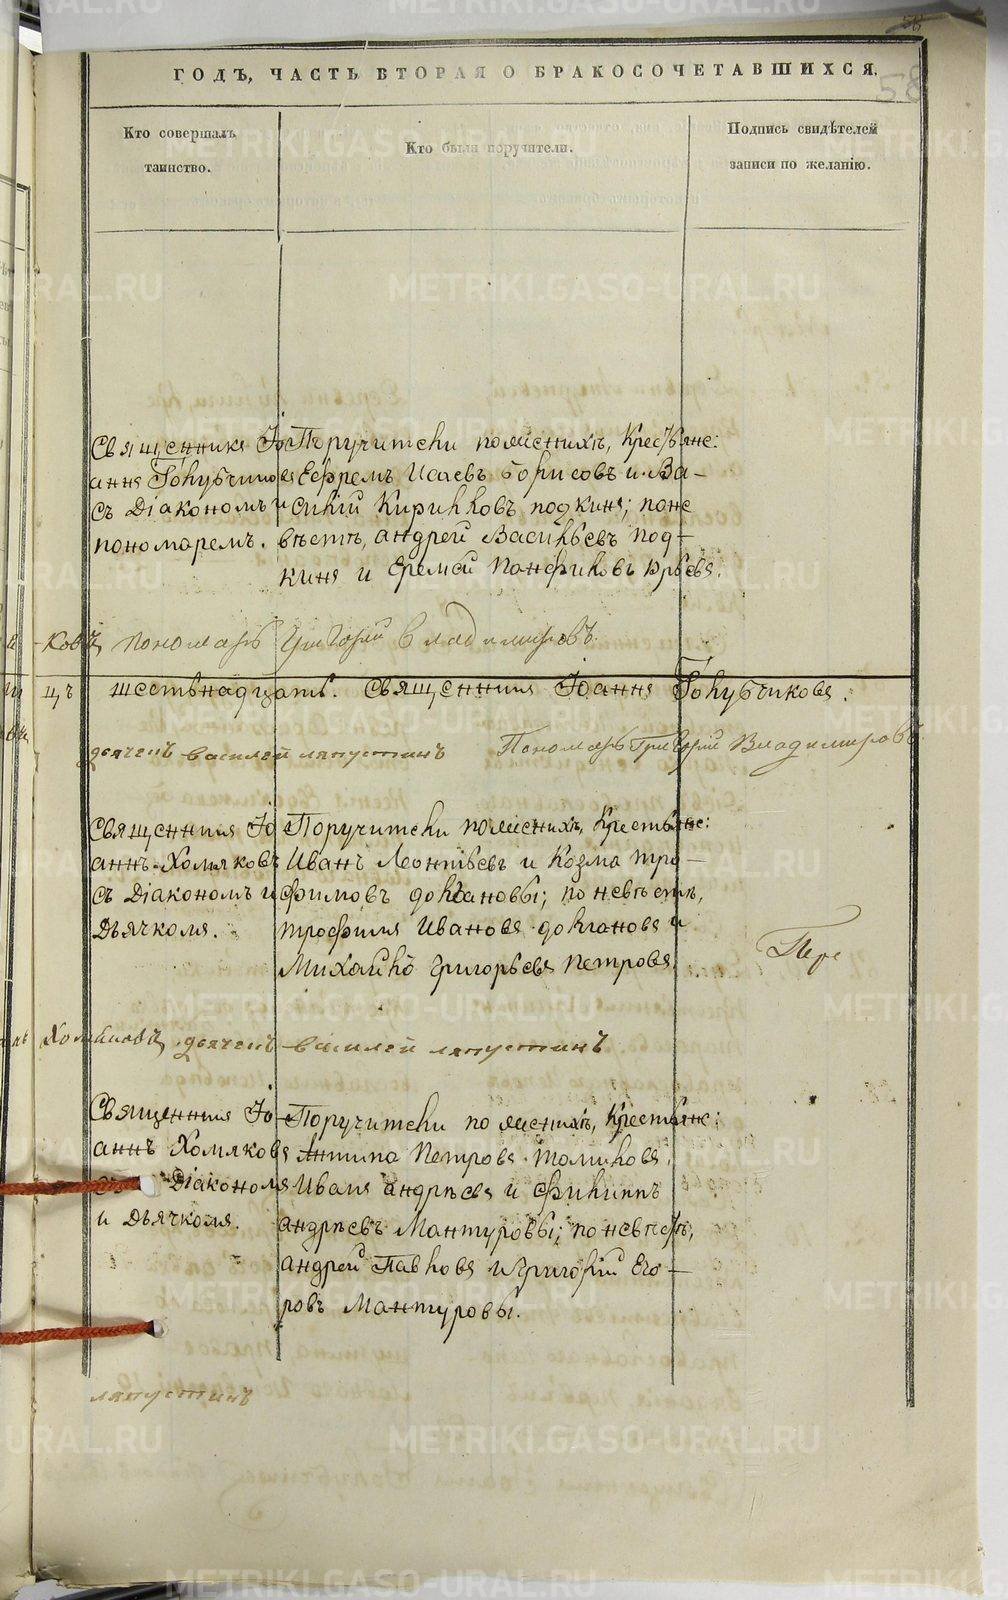 58
58
ГОДЪ, ЧАСТЬ ВТОРАЯ О БРАКОСОЧЕТАВШИХСЯ.
Кто совершалъ
таинство.
Кто были поручители.
Подпись свидѣтелей
записи по желанію.
Священникъ Іо
аннъ Голубчиковъ
съ Діакономъ и
пономаремъ.
Поручители по женихѣ, Крестьяне:
Ефремъ Исаевъ Борисовъ и Ва-
силій Кирилловъ
невѣстѣ, андрей Васильевъ
и Еремѣй Панфиловъ Юрьевъ.
-ковъ пономарь Григорій Владимировъ
цъ шестьнадцать. Священникъ Іоаннъ Голубчиковъ.
дьячекъ василей ляпустинъ Пономарь Григорій Владимировъ
Священникъ Іо
аннъ Хомяковъ
съ Діакономъ и
Дьячкомъ.
Поручители по женихѣ, Крестьяне:
Иванъ Леонтьевъ и Козма Тро-
фимовъ долгановы; по невѣстѣ,
трофимъ Ивановъ долгановъ и
Михайло Григорьевъ Петровъ.
Пере
Хомяковъ, дьячекъ василей ляпустинъ
Священникъ Іо
аннъ Хомяковъ
съ Діакономъ
и Дьячкомъ.
Поручители по женихѣ, Крестьяне:
Антипа Петровъ Томиловъ,
Иванъ андрѣевъ и Филиппъ
андрѣевъ Мантуровы; по невѣстѣ,
андрей Павловъ и Григорій Его-
ровъ Мантуровы.
ляпустинъ
METRIKI.GASO-URAL.RU